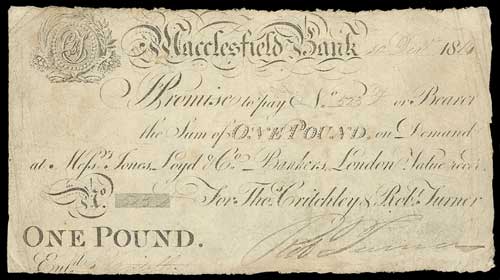 Macclesfield Bank 10 Decr. 18
I Promise to pay No. 575 or Bearer
the Sum of ONE POUND on Demand
at Messrs. Jones, Loyd & Co. Bankers, London Value recd.
No. 575 For Thos. Critchley & Robt. Turner
ONE POUND.
Robt Turner
Entd.